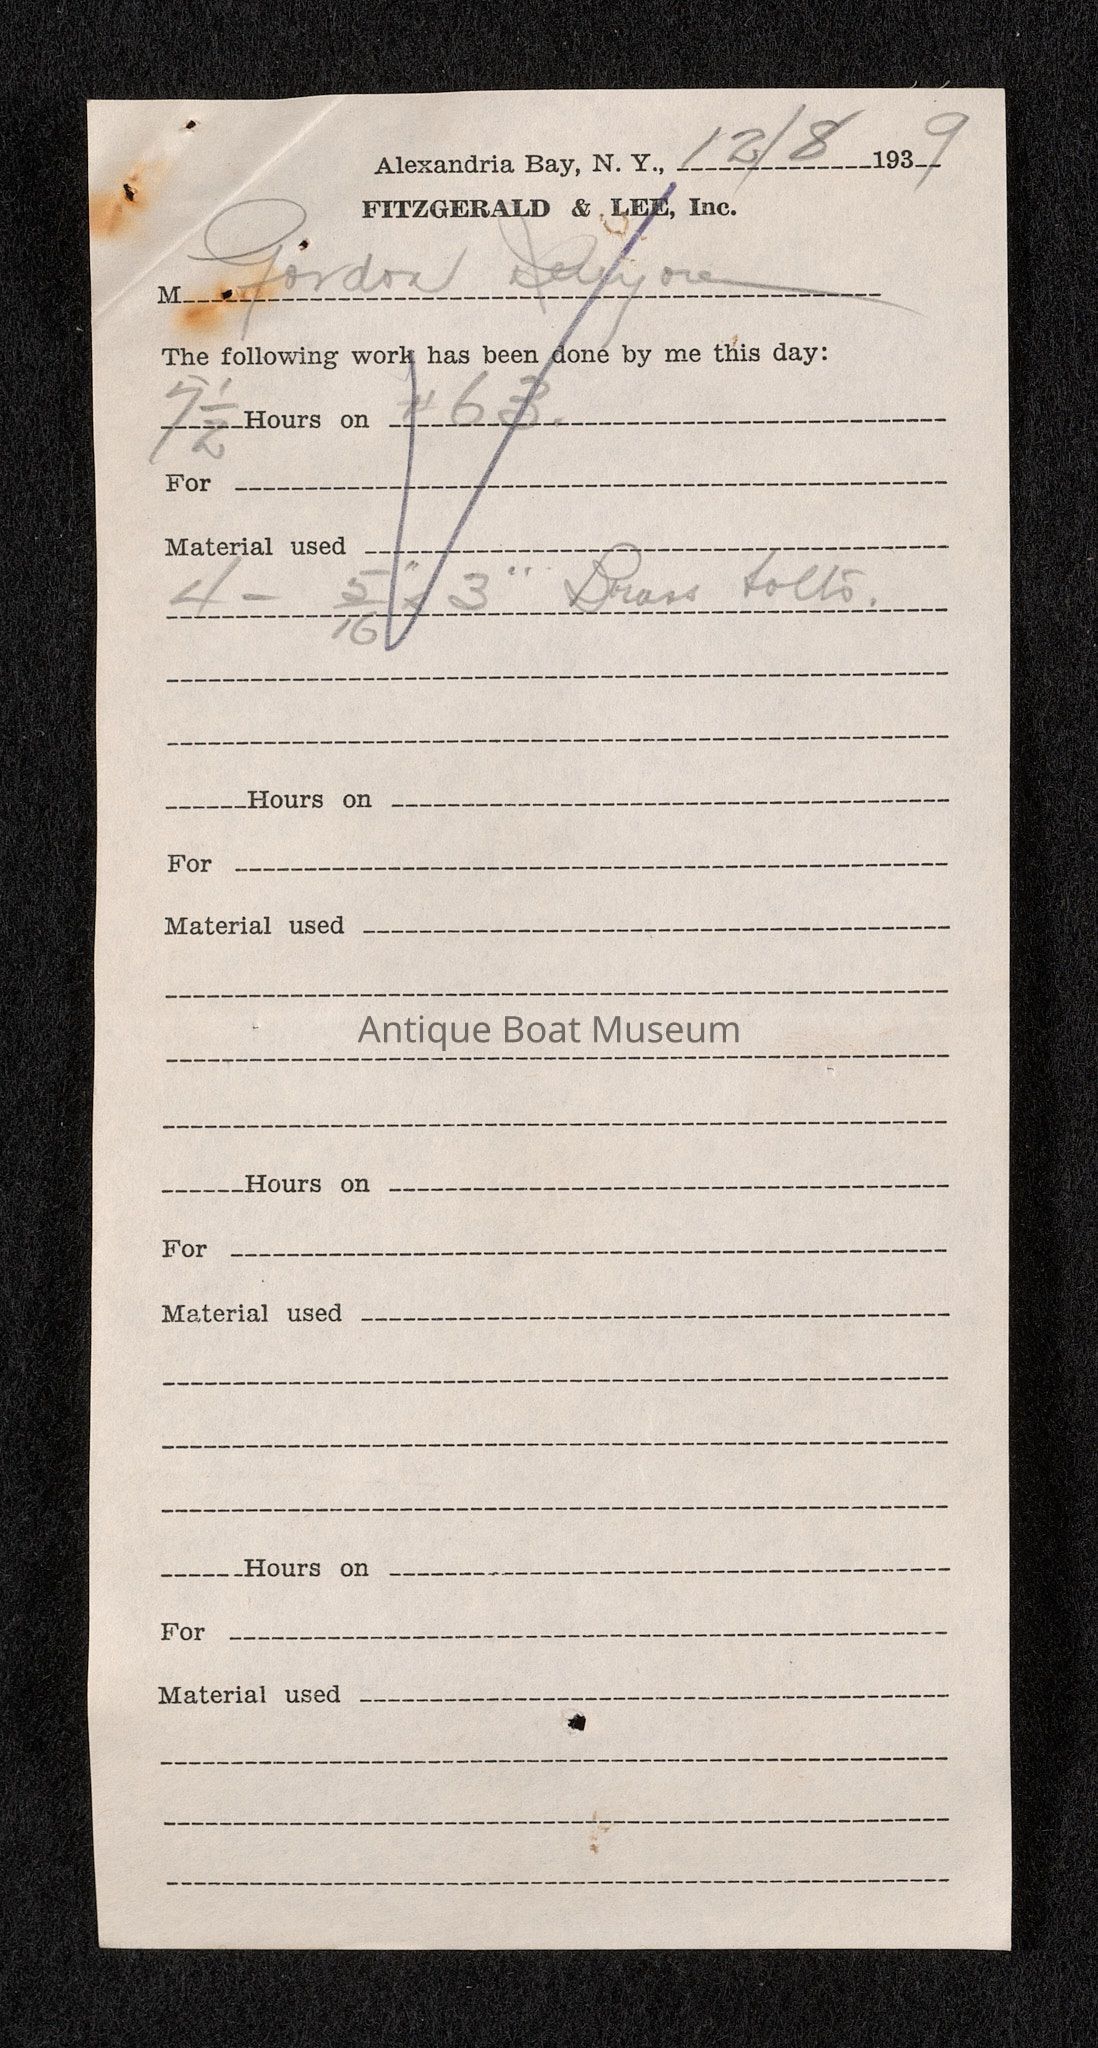 Alexandria Bay, N. Y., 12/8 1939
FITZGERALD & LEE, Inc.
M Gordon
The following work has been done by me this day:
7 1/2 Hours on #63.
For
Material used
4 - 5/16" x 3" Brass bolts.
Hours on
For
Material used
Antique Boat Museum
Hours on
For
Material used
Hours on
For
Material used